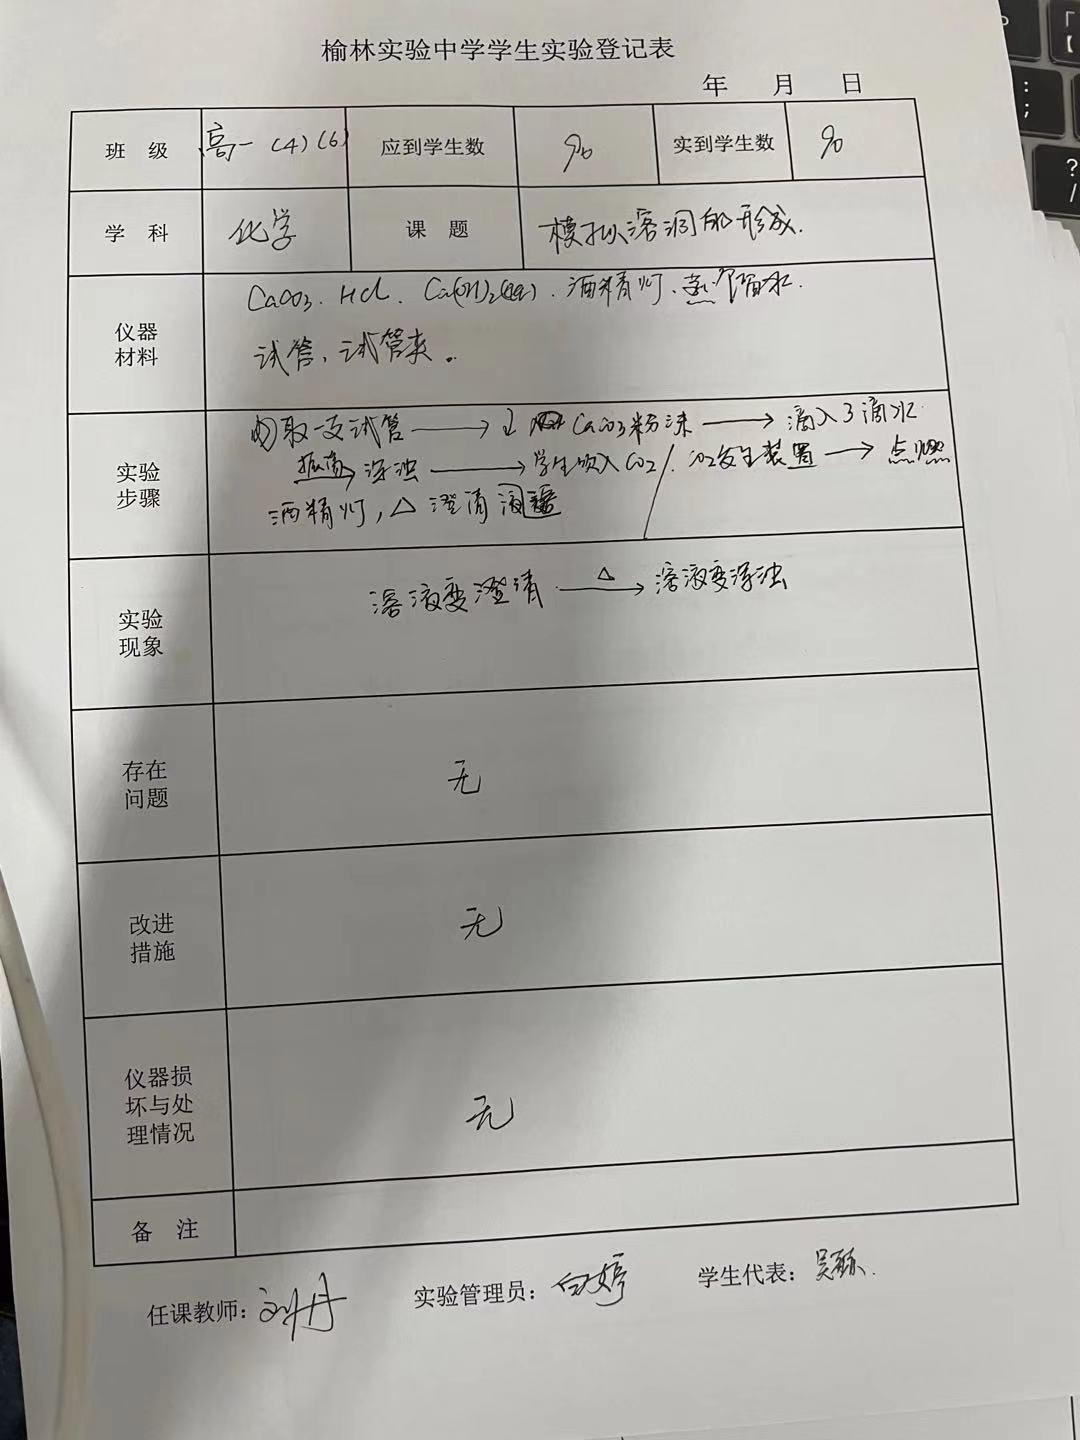 榆林实验中学学生实验登记表
年 月 日
班 级 高一(4)(6) 应到学生数 90 实到学生数 90
学 科 化学 课 题 模拟溶洞的形成.
仪器材料 CaCO3. HCl. Ca(OH)2(aq). 酒精灯、蒸馏水.
试管、试管夹。
实验步骤 取一支试管 → CaCO3粉沫 → 滴入3滴水
振荡→浑浊 → 学生吹入CO2/CO2发生装置 → 点燃
酒精灯, △ 澄清
实验现象 溶液变澄清 △→ 溶液变浑浊
存在问题 无
改进措施 无
仪器损坏与处理情况 无
备 注
任课教师: 刘丹 实验管理员: 白婷 学生代表: 吴